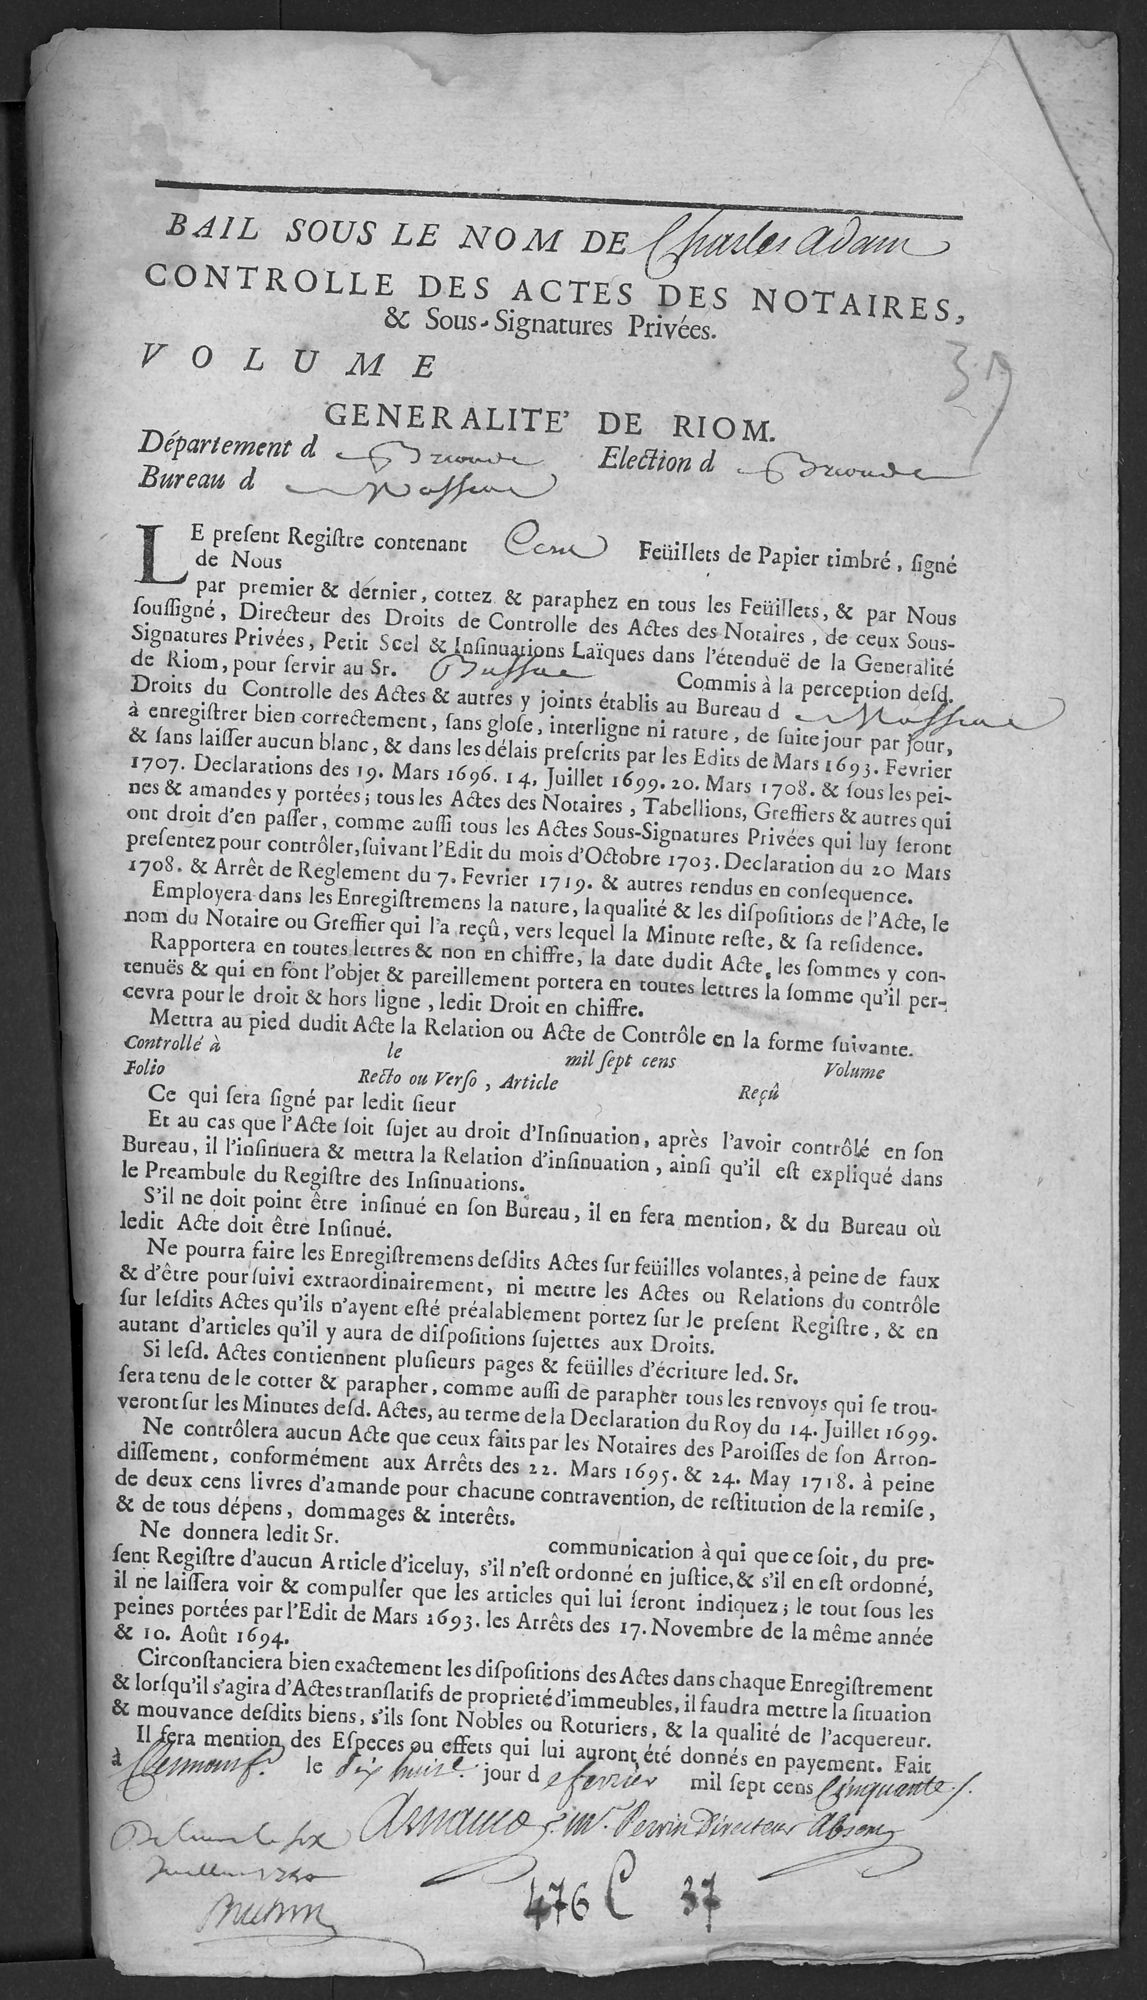 BAIL SOUS LE NOM DE Charles Adam
CONTROLLE DES ACTES DES NOTAIRES,
& Sous-Signatures Privées.
VOLUME
37
GENERALITE' DE RIOM.
Département d e Brioude Election d e Brioude
Bureau d e Massiac
LE preſent Regiſtre contenant Cent Feüillets de Papier timbré, ſigné
de Nous
par premier & dernier, cottez & paraphez en tous les Feüillets, & par Nous
ſouſſigné, Directeur des Droits de Controlle des Actes des Notaires, de ceux Sous-
Signatures Privées, Petit Scel & Inſinuations Laïques dans l'étenduë de la Generalité
de Riom, pour ſervir au Sr. Commis à la perception deſd.
Droits du Controlle des Actes & autres y joints établis au Bureau d e Massiac
à enregiſtrer bien correctement, ſans gloſe, interligne ni rature, de ſuite jour par jour,
& ſans laiſſer aucun blanc, & dans les délais preſcrits par les Edits de Mars 1693. Fevrier
1707. Declarations des 19. Mars 1696. 14. Juillet 1699. 20. Mars 1708. & ſous les pei-
nes & amandes y portées; tous les Actes des Notaires, Tabellions, Greffiers & autres qui
ont droit d'en paſſer, comme auſſi tous les Actes Sous-Signatures Privées qui luy ſeront
preſentez pour contrôler, ſuivant l'Edit du mois d'Octobre 1703. Declaration du 20 Mars
1708. & Arrêt de Reglement du 7. Fevrier 1719. & autres rendus en conſequence.
Employera dans les Enregiſtremens la nature, la qualité & les diſpoſitions de l'Acte, le
nom du Notaire ou Greffier qui l'a reçû, vers lequel la Minute reſte, & ſa reſidence.
Rapportera en toutes lettres & non en chiffre, la date dudit Acte, les ſommes y con-
tenuës & qui en font l'objet & pareillement portera en toutes lettres la ſomme qu'il per-
cevra pour le droit & hors ligne, ledit Droit en chiffre.
Mettra au pied dudit Acte la Relation ou Acte de Contrôle en la forme ſuivante.
Controllé à le mil ſept cens Volume
Folio Recto ou Verſo, Article Reçû
Ce qui ſera ſigné par ledit ſieur
Et au cas que l'Acte ſoit ſujet au droit d'Inſinuation, après l'avoir contrôlé en ſon
Bureau, il l'inſinuera & mettra la Relation d'inſinuation, ainſi qu'il eſt expliqué dans
le Preambule du Regiſtre des Inſinuations.
S'il ne doit point être inſinué en ſon Bureau, il en fera mention, & du Bureau où
ledit Acte doit être Inſinué.
Ne pourra faire les Enregiſtremens deſdits Actes ſur feüilles volantes, à peine de faux
& d'être pourſuivi extraordinairement, ni mettre les Actes ou Relations du contrôle
ſur leſdits Actes qu'ils n'ayent eſté préalablement portez ſur le preſent Regiſtre, & en
autant d'articles qu'il y aura de diſpoſitions ſujettes aux Droits.
Si leſd. Actes contiennent pluſieurs pages & feüilles d'écriture led. Sr.
ſera tenu de le cotter & parapher, comme auſſi de parapher tous les renvoys qui ſe trou-
veront ſur les Minutes deſd. Actes, au terme de la Declaration du Roy du 14. Juillet 1699.
Ne contrôlera aucun Acte que ceux faits par les Notaires des Paroiſſes de ſon Arron-
diſſement, conformément aux Arrêts des 22. Mars 1695. & 24. May 1718. à peine
de deux cens livres d'amande pour chacune contravention, de reſtitution de la remiſe,
& de tous dépens, dommages & interêts.
Ne donnera ledit Sr. communication à qui que ce ſoit, du pre-
ſent Regiſtre d'aucun Article d'iceluy, s'il n'eſt ordonné en juſtice, & s'il en eſt ordonné,
il ne laiſſera voir & compulſer que les articles qui lui ſeront indiquez; le tout ſous les
peines portées par l'Edit de Mars 1693. les Arrêts des 17. Novembre de la même année
& 10. Août 1694.
Circonſtanciera bien exactement les diſpoſitions des Actes dans chaque Enregiſtrement
& lorſqu'il s'agira d'Actes tranſlatifs de proprieté d'immeubles, il faudra mettre la ſituation
& mouvance deſdits biens, s'ils ſont Nobles ou Roturiers, & la qualité de l'acquereur.
Il fera mention des Eſpeces ou effets qui lui auront été donnés en payement. Fait
à Clermont le dix huit jour d e fevrier mil ſept cens Cinquante
Arnaud p. mr. Perrin Directeur Absent
476 C 37